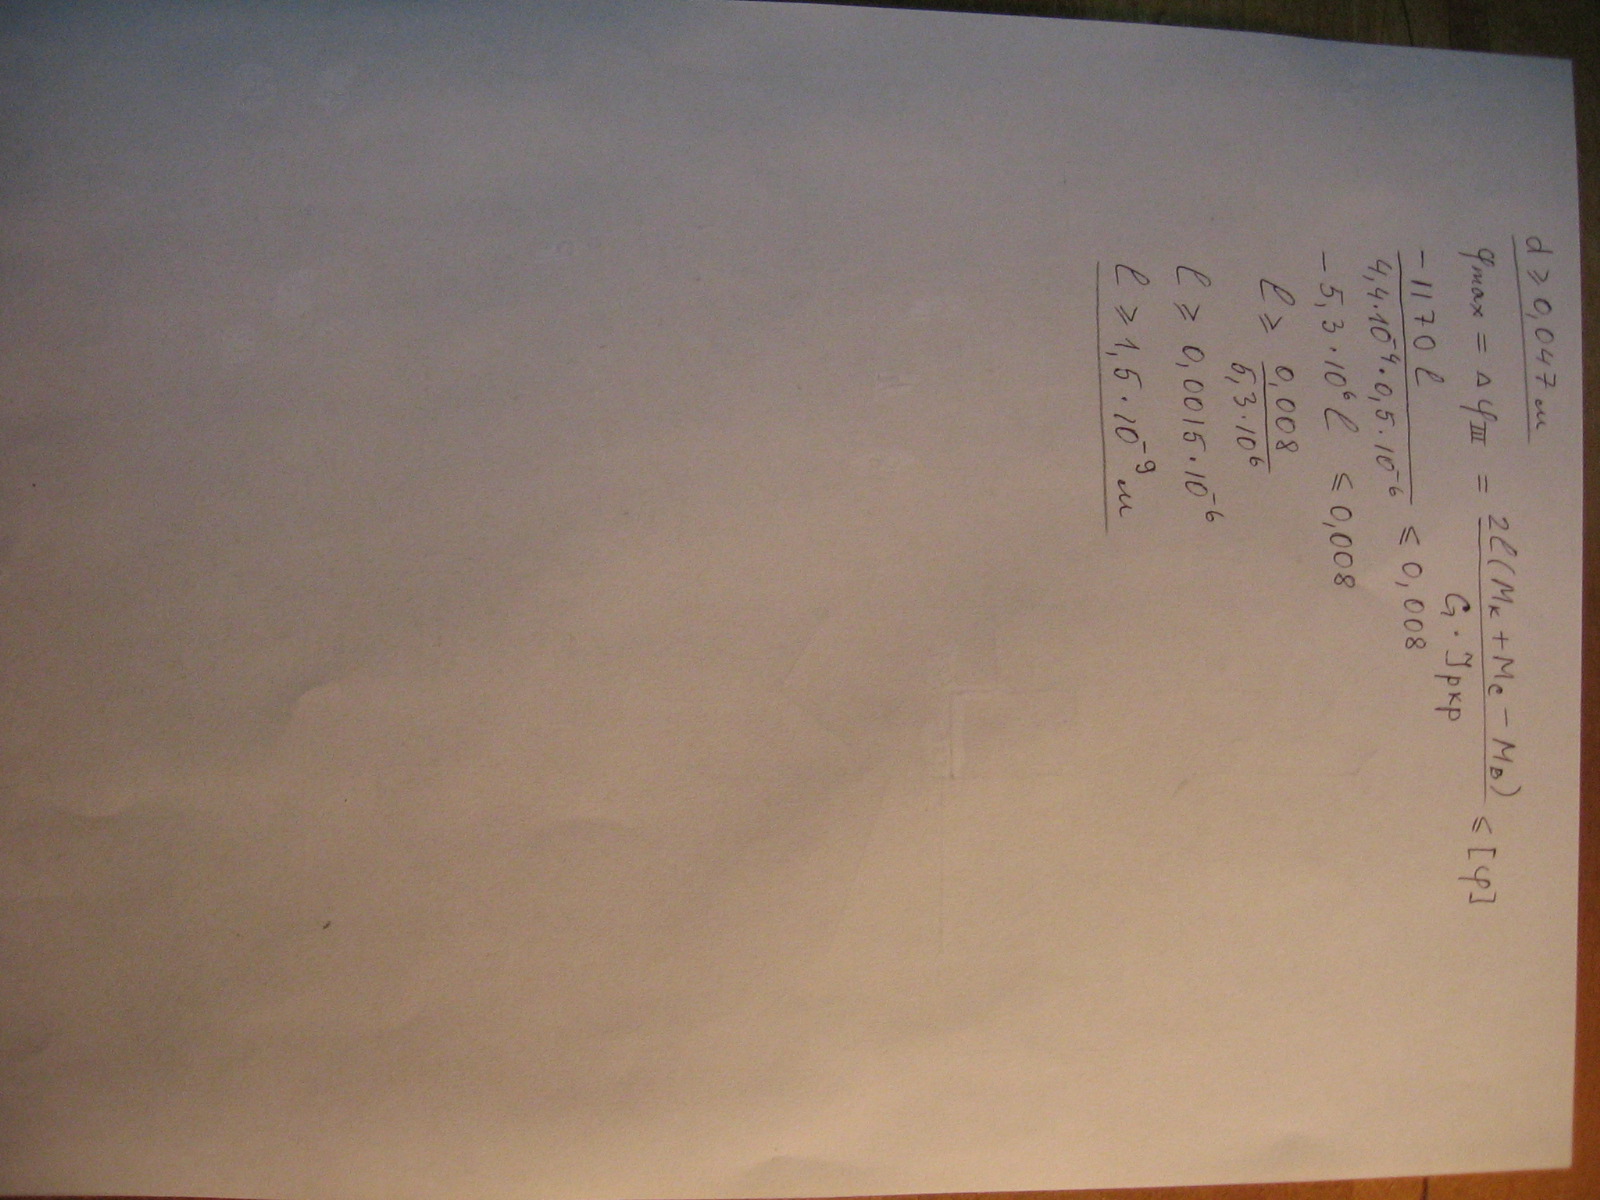 d ≥ 0,047 м
φmax = Δφ_III = 2ℓ(Mк + Mc − MD) / G · Jркр ≤ [φ]
−1170 ℓ / 4,4·10⁻⁴·0,5·10⁻⁶ ≤ 0,008
−5,3·10⁶ ℓ ≤ 0,008
ℓ ≥ 0,008 / 5,3·10⁶
ℓ ≥ 0,0015·10⁻⁶
ℓ ≥ 1,5·10⁻⁹ м